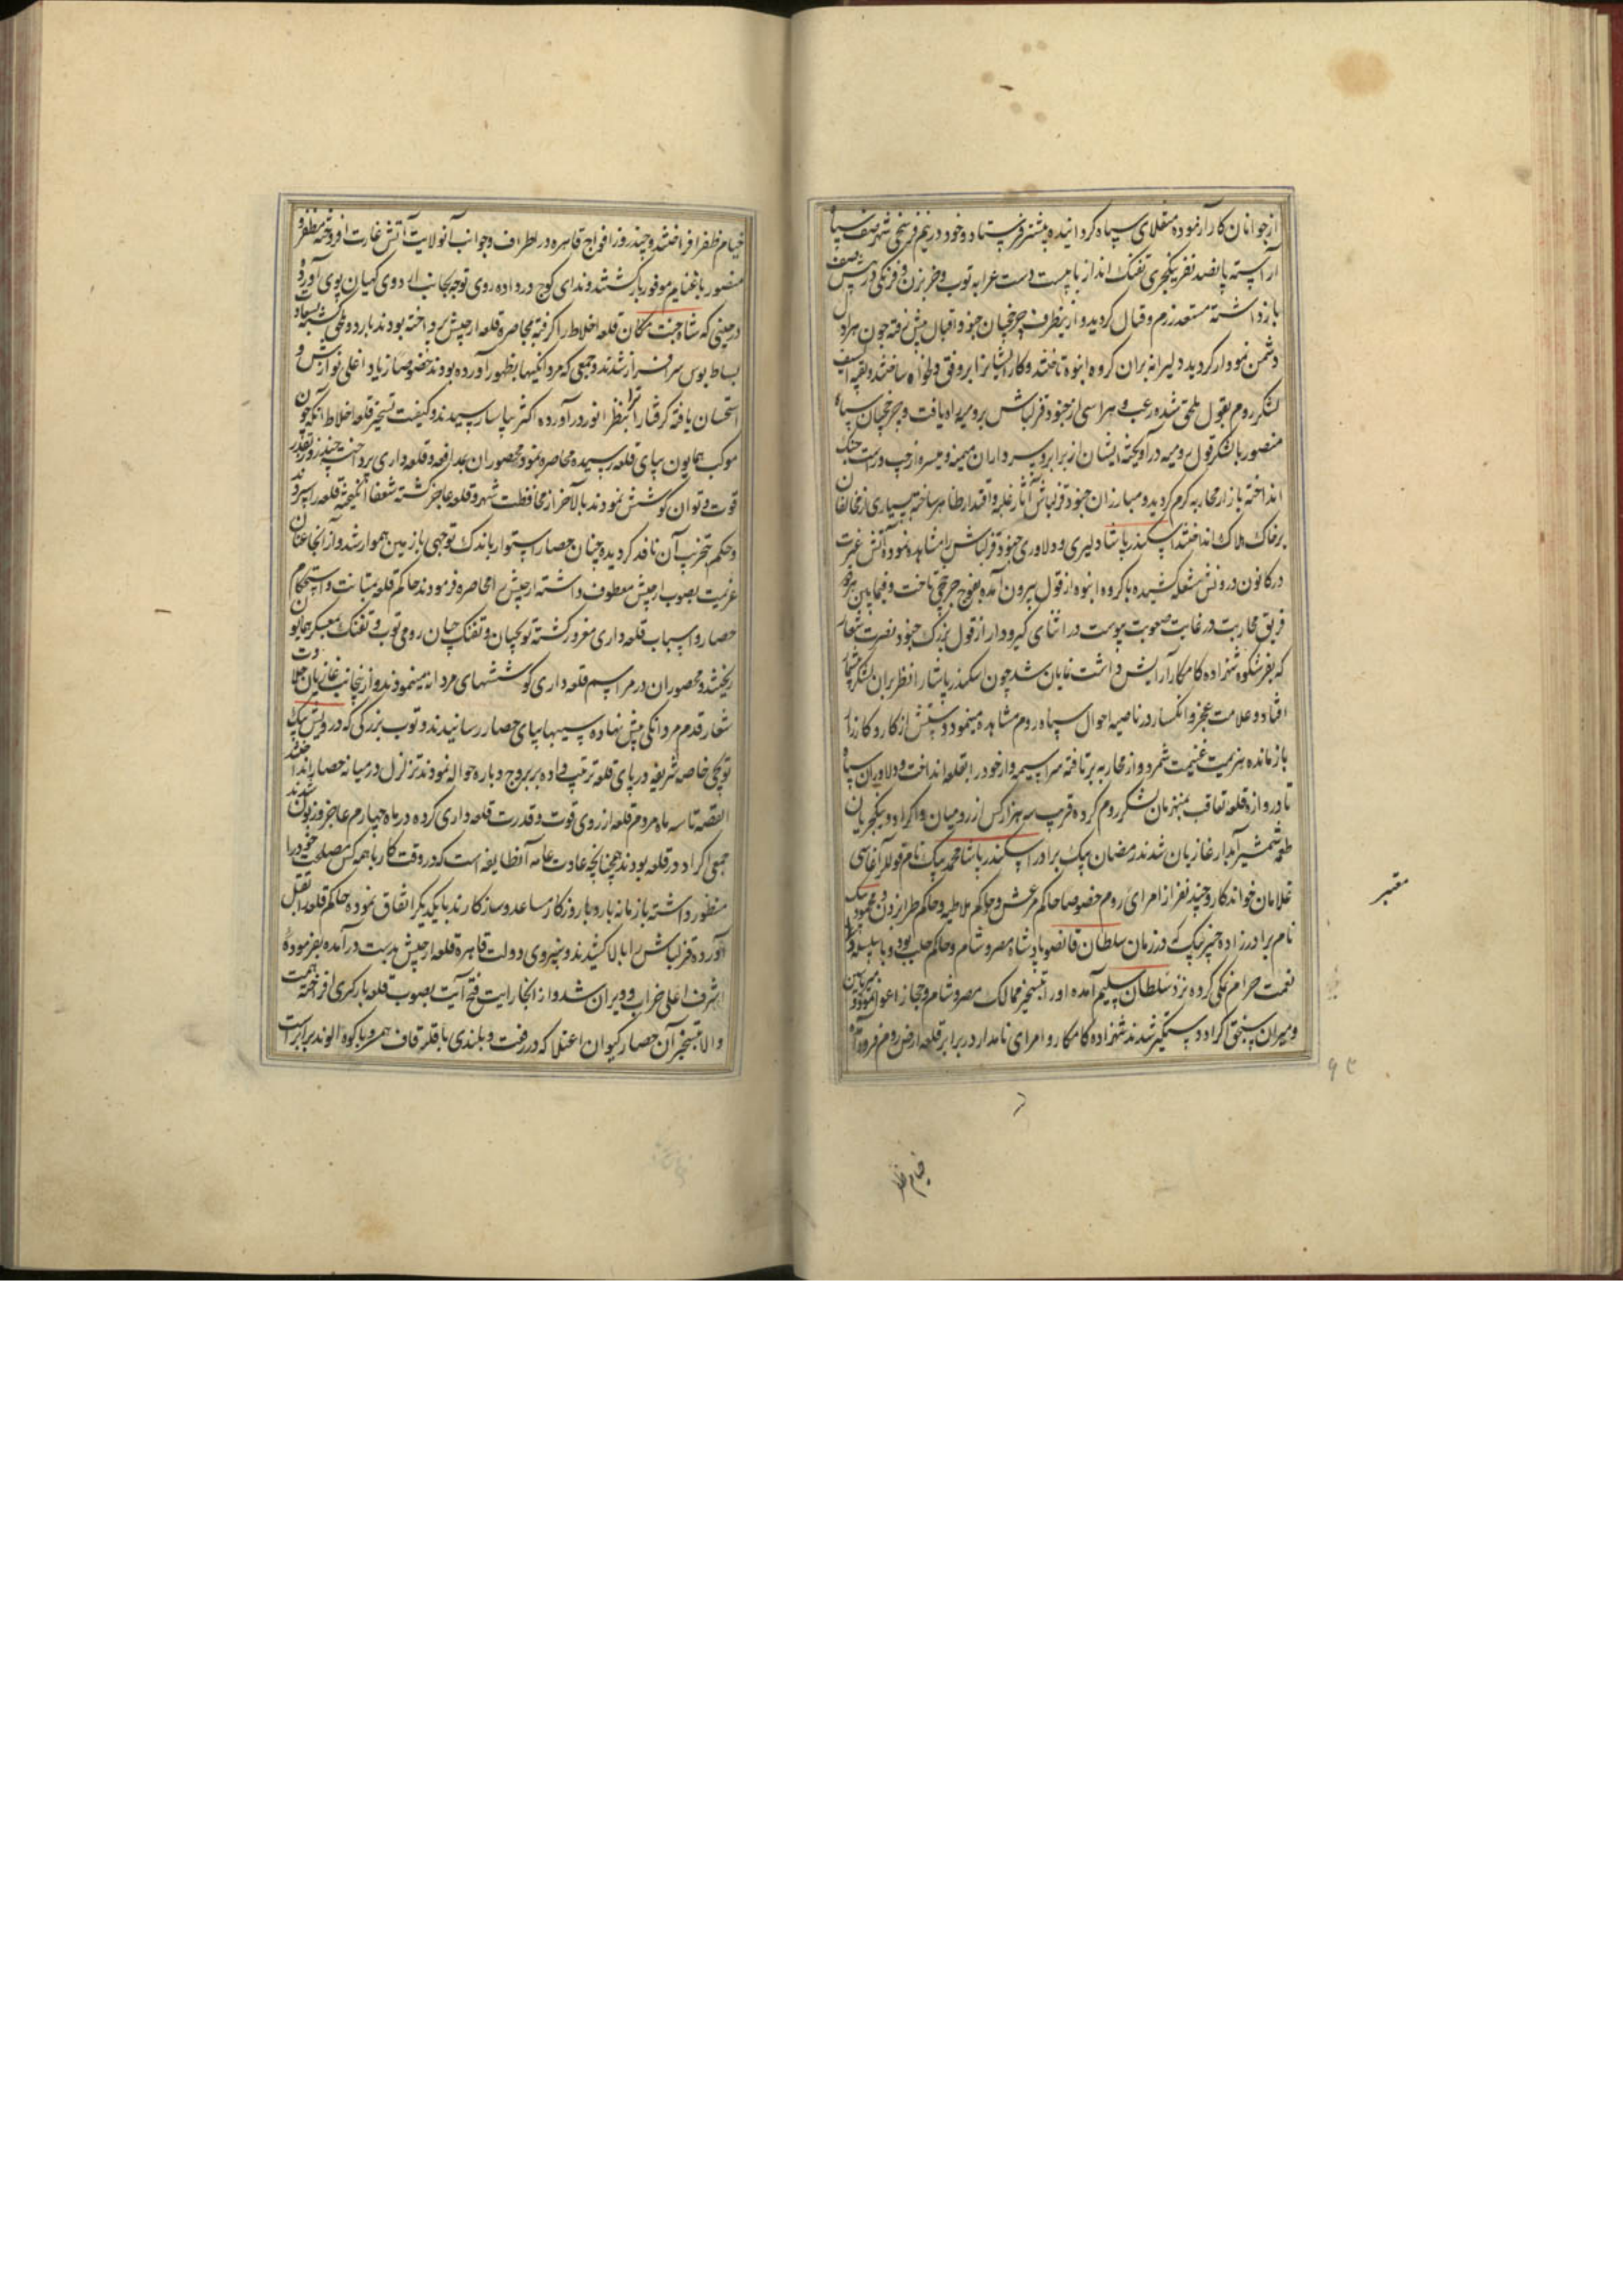 از جوانان کار آزموده منقلای سپاه گردانیده پیشتر فرستاد و خود در نیم فرسخی شهر صف سپاه
آراسته پانصد نفر ینکچری تفنک انداز با بیست دست عرابه توب و ضربزن و فرنکی در پیش صف
بازداشته مستعد رزم و قتال کردید و ازینطرف چرخچیان جنود اقبال پیش رفته چون هراول
دشمن نمودار کردید دلیرانه بران کروه انبوه تاختند و کار ایشانرا بر وفق دلخواه ساختند و بقیه السیف
لشکر روم بقول ملحق شده رعب و هراسی از جنود قزلباش برومیه راه یافت و چرخچیان سپاه
منصور با لشکر قول رومیه درآویخته ایشان از برابر و سرداران میمنه و میسره از چپ و راست جنک
انداخته بازار محاربه کرم کردید و مبارزان جنود قزلباش آثار غلبه و اقتدار ظاهر ساخته بسیاری از مخالفان
برخاک هلاک انداختند اسکندر پاشا دلیری و دلاوری جنود قزلباش را مشاهده نموده آتش غیرت
در کانون درونش شعله کشیده با کروه انبوه از قول بیرون آمده بفوج چرخچی تاخت و فیمابین هر دو
فریق محاربت در غایت صعوبت پیوست در اثنای کیرودار از قول بزرک جنود نصرت شعار
که بفر شکوه شهزاده کامکار آرایش داشت نمایان شد چون اسکندر پاشا را نظر بران لشکر
افتاد و علامت عجز و انکسار در ناصیه احوال سپاه روم مشاهده مینمود دستش از کار و کارزار
بازمانده هزیمت غنیمت شمرد و از محاربه برتافته سراسیمه وار خود را بقلعه انداخت و دلاوران سپاه
تا دروازه قلعه تعاقب منهزمان لشکر روم کرده قریب سه هزار کس از رومیان و اکراد و ینکچریان
طعمه شمشیر آبدار غازیان شدند رمضان بیک برادر اسکندر پاشا محمد بیک نام قوللر آغاسی
غلامان خواندکار و چند نفر از امرای روم خصوصا حاکم مرعش و حاکم ملاطیه و حاکم طرابزون و محمود بیک
نام برادرزاده خیر بیک که در زمان سلطان قانصو پادشاه مصر و شام و حاکم حلب بود و با سلسله
نعمت حرام نمکی کرده نزد سلطان سلیم آمده او را بتسخیر ممالک مصر و شام و حجاز اغوا نموده بود
و میران سنجق اکراد دستکیر شدند شهزاده کامکار و امرای نامدار در برابر قلعه ارض روم فرود آمده
معتبر
خیام ظفر
خیام ظفر افراختند و چند روز افواج قاهره در اطراف و جوانب آنولایت آتش غارت افروخته مظفر و
منصور با غنایم موفور بازکشتند و ندای کوچ در داده روی توجه بجانب اردوی کیهان پوی آوردند
در حینی که شاه جنت مکان قلعه اخلاط را کرفته بمحاصره قلعه ارجیش پرداخته بودند باردو ملحق کشته بسعادت
بساط بوس سرافراز شدند و جمعی که مردانکیها بظهور آورده بودند خصوصا زیاد اغلی نوازش و
استحسان یافته کرفتارانرا بنظر انور درآورده اکثر بیاسا رسیدند و کیفیت تسخیر قلعه اخلاط آنکه چون
موکب همایون بپای قلعه رسیده محاصره نمود محصوران بمدافعه و قلعه داری پرداختند چند روز بقدر
قوت و توان کوشش نمودند بالآخر از محافظت شهر و قلعه عاجز کشته شفعا انکیخته قلعه را سپردند
و حکم بتخریب آن نافذ کردیده چنان حصار استوار باندک توجهی با زمین هموار شد و از آنجا عنان
عزیمت بصوب ارجیش معطوف داشته ارجیش را محاصره فرمودند حاکم قلعه بمتانت و استحکام
حصار و اسباب قلعه داری مغرور کشته توپچیان و تفنکچیان رومی توب و تفنک بمعسکر همایون
ریختند و محصوران در مراسم قلعه داری کوششهای مردانه مینمودند و ازینجانب غازیان جلادت
شعار قدم مردانکی پیش نهاده سیبها بپای حصار رسانیدند و توب بزرکی که درویش بیک
توپچی خاص شریفه در پای قلعه ترتیب داده بر بروج و باره حواله نمودند تزلزل در میانه حصار انداختند
القصه تا سه ماه مردم قلعه از روی قوت و قدرت قلعه داری کرده در ماه چهارم عاجز و زبون شدند
جمعی اکراد در قلعه بودند همچنانچه عادت عامه آنطایفه است که در وقت کار با همه کس مصلحت خود را
منظور داشته با زمانه بار و با روزکار مساعد و سازکارند با یکدیکر اتفاق نموده حاکم قلعه را بقتل
آورده قزلباش را بالا کشیدند و بنیروی دولت قاهره قلعه ارجیش بدست درآمده بفرموده
اشرف اعلی خراب و ویران شد و از آنجا رایت فتح آیت بصوب قلعه بارکری افراخته همت
والا بتسخیر آن حصار کیوان اعتلا که در رفعت و بلندی با قله قاف همسر و با کوه الوند برابر است